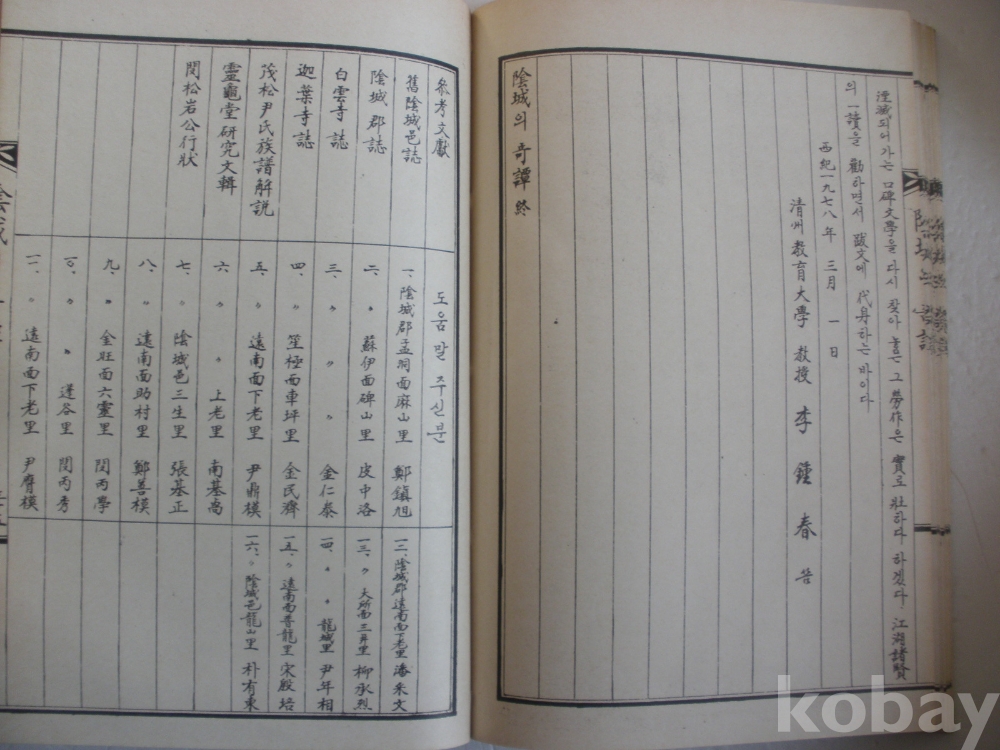 湮滅되어가는 口碑文學을 다시 찾아 놓은 그 勞作은 實로 壯하다 하겠다. 江湖諸賢
의 一讀을 勸하면서 跋文에 代身하는 바이다
西紀一九七八年 三月 一日
清州敎育大學 敎授 李鍾春 苔
陰城의 奇譚 終
參考文獻
舊陰城邑誌
陰城郡誌
白雲寺誌
迦葉寺誌
茂松尹氏族譜解説
靈龜堂研究文輯
閔松岩公行狀
도움말 주신분
一、陰城郡孟洞面麻山里 鄭鎮旭
二、〃 蘇伊面碑山里 皮中洛
三、〃 〃 金仁泰
四、〃 笙極面車坪里 金民濟
五、〃 遠南面下老里 尹鼎模
六、〃 上老里 南基
七、陰城邑三生里 張基正
八、〃 遠南面助村里 鄭善模
九、〃 金旺面六靈里 閔丙學
一〇、〃 〃 蓬谷里 閔丙秀
一一、〃 遠南面下老里 尹膺模
一二、陰城郡遠南面下老里 潘朱文
一三、〃 大所面三井里 柳承烈
一四、〃 〃 龍城里 尹年相
一五、〃 遠南面普龍里 宋殷培
一六、〃 陰城邑龍山里 朴有東
kobay